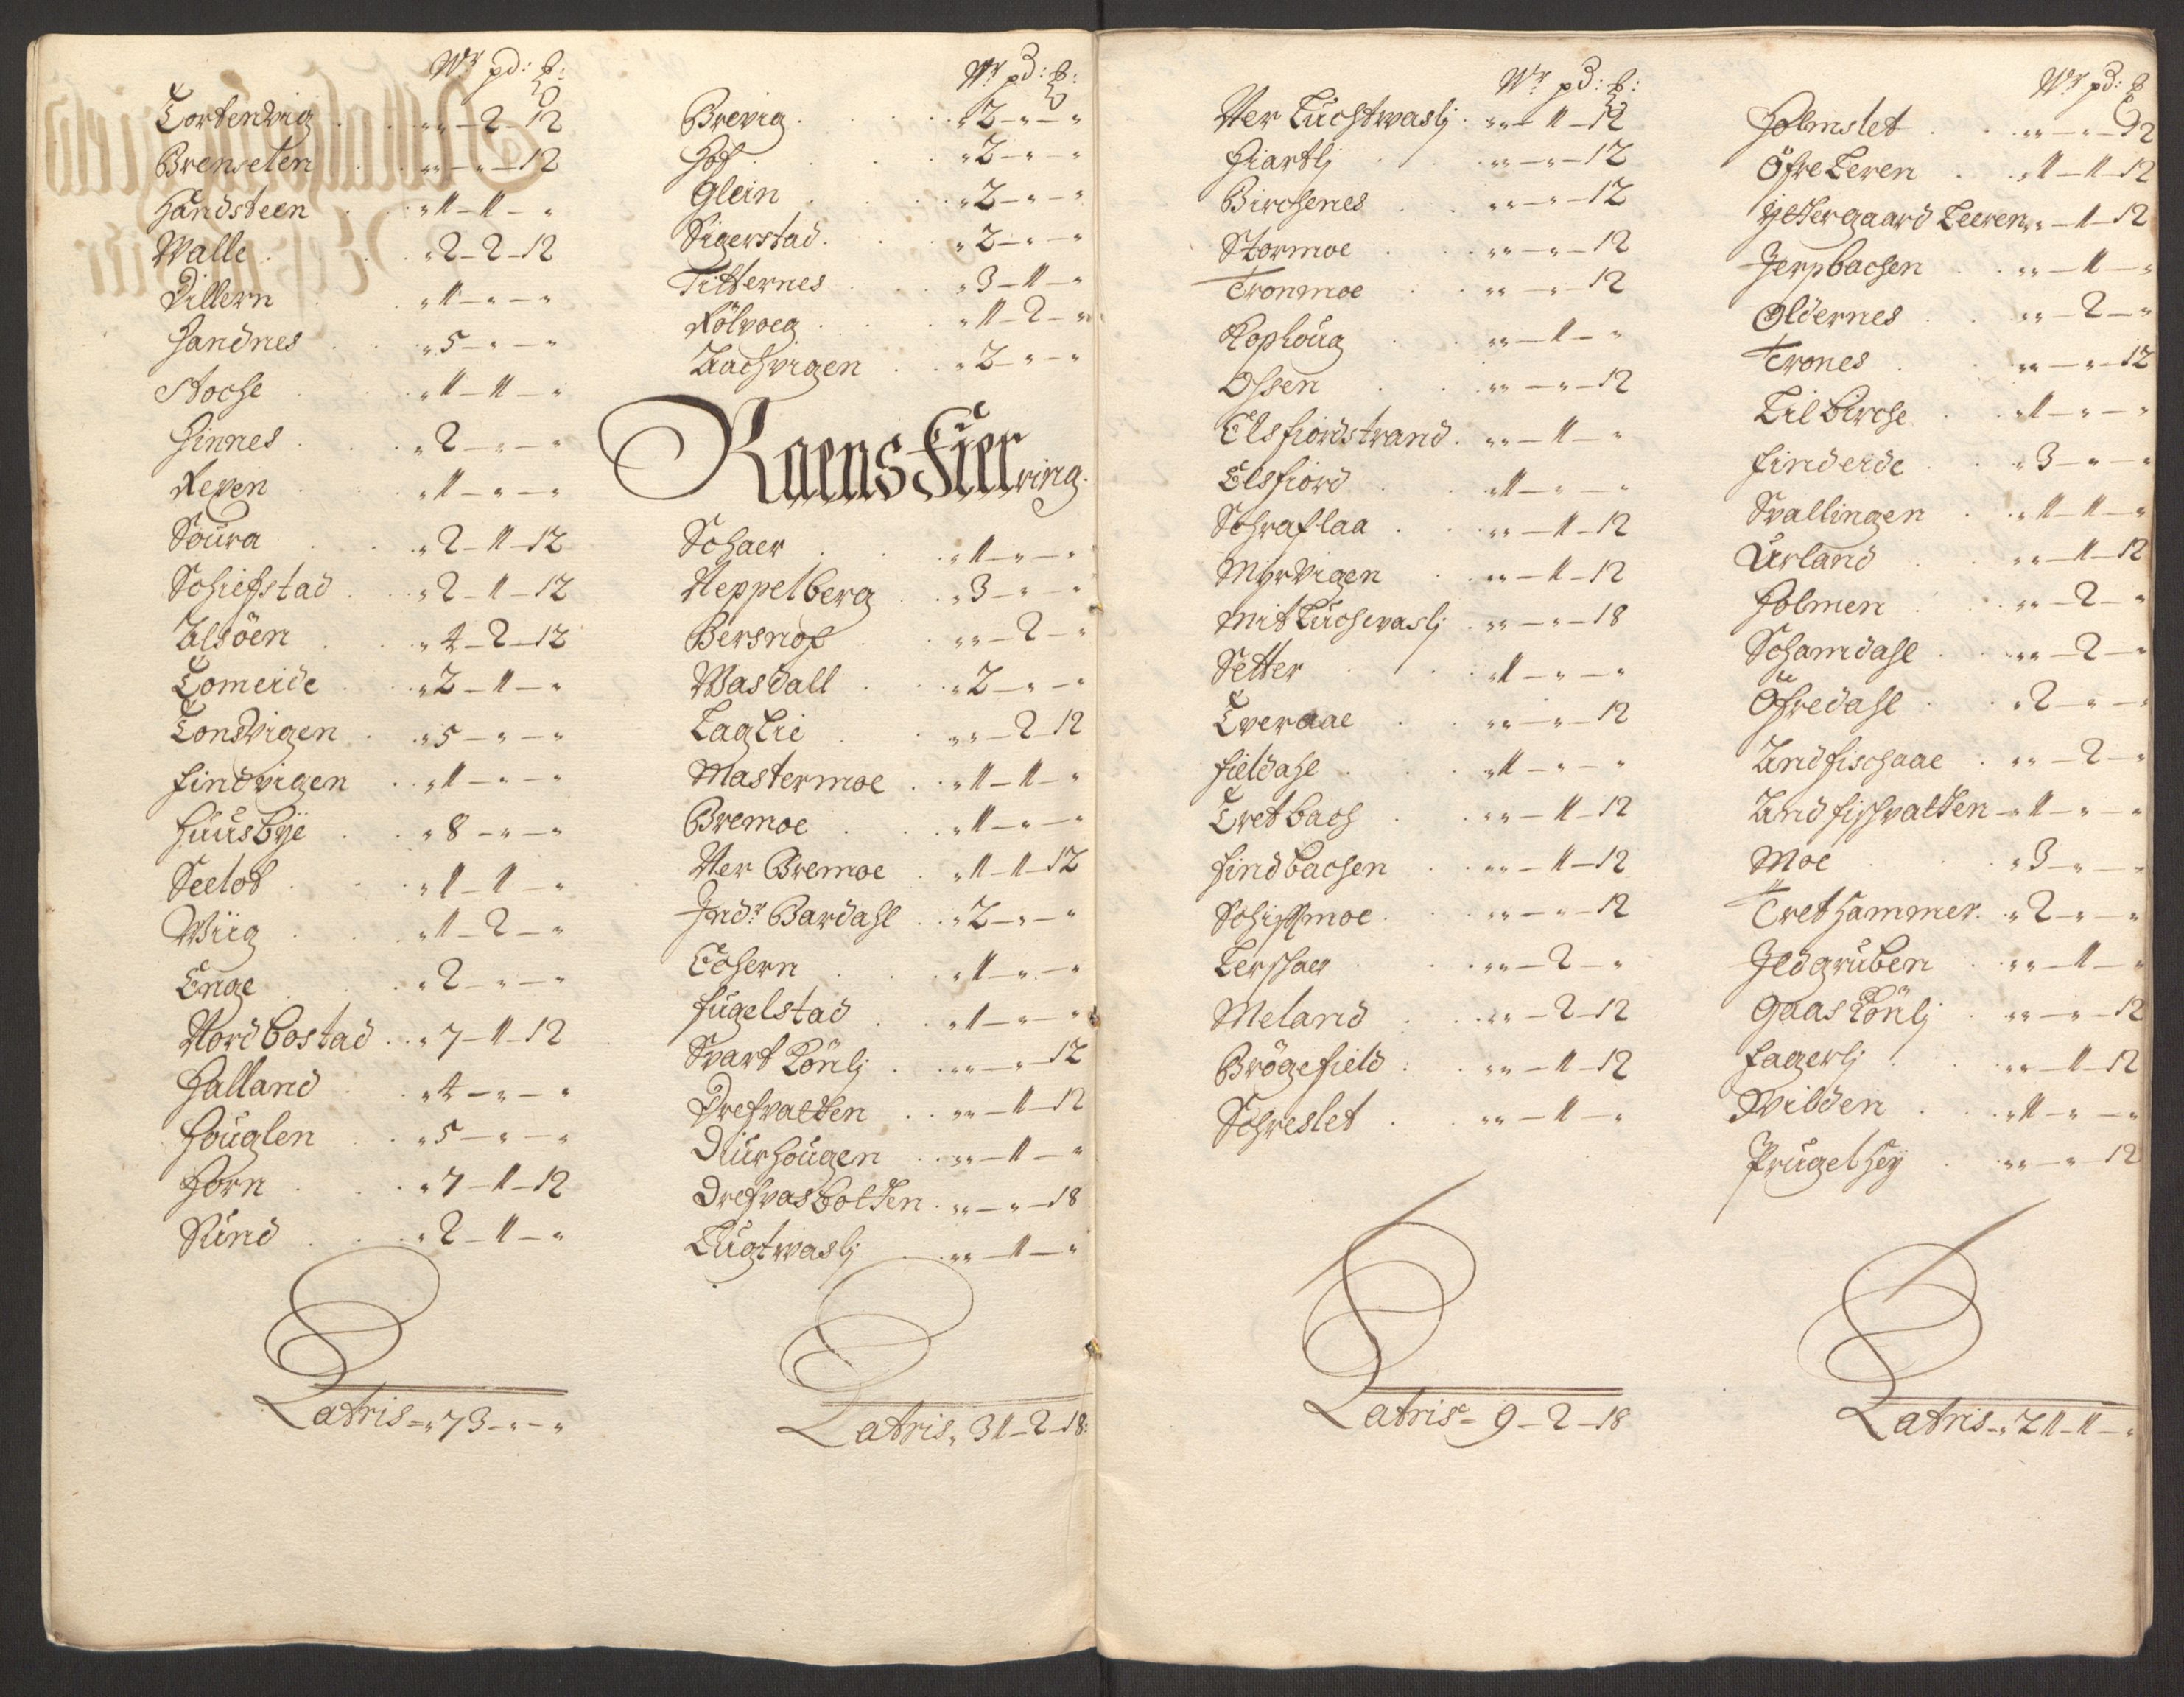 Wr pd: ℔:
Tortendvig . . „ „ – 2 – 12
Brenselen . . „ „ – „ – 12
Handsteen . . „ 1 – 1 – „
Walle . . „ 2 – 2 – 12
Dillern . . „ 1 – „ – „
Handnes . . „ 5 – „ – „
Stoche . . „ 1 – 1 – „
Hinnes . . „ 2 – „ – „
Reven . . „ 1 – „ – „
Soura . . „ 2 – 1 – 12
Schiefstad . . „ 2 – 1 – 12
Alsöen . . „ 4 – 2 – 12
Tomeide . . „ 2 – 1 – „
Tondvigen . . „ 5 – „ – „
Findvigen . . „ 1 – „ – „
Huusbye . . „ 8 – „ – „
Seelos . . „ 1 – 1 – „
Wiig . . „ 1 – 2 – „
Enge . . „ 2 – „ – „
Nordbostad . . „ 7 – 1 – 12
Halland . . „ 4 – „ – „
Houglen . . „ 5 – „ – „
Horn . . „ 7 – 1 – 12
Sund . . „ 2 – 1 – „
Latris – „ 73 – „ – „
Wr pd: ℔:
Brevig . . „ 2 – „ – „
Hof . . „ 2 – „ – „
Glein . . „ 2 – „ – „
Sigerstad . . „ 2 – „ – „
Titternes . . „ 3 – 1 – „
Rölvoeg . . „ 1 – 2 – „
Aachvigen . . „ 2 – „ – „
Raens Fierring.
Schaer . . „ 1 – „ – „
Neppelberg . . „ 3 – „ – „
Bersnof . . „ „ – 2 – „
Wasdall . . „ 2 – „ – „
Laglie . . „ „ – 2 12
Mastermoe . . „ 1 – 1 – „
Bremoe . . „ 1 – „ – „
Ner Bremoe . . „ 1 – 1 – 12
Indr Bardahl . . „ 2 – „ – „
Echern . . „ 1 – „ – „
Fugelstad . . „ 1 – „ – „
Svartlönlj . . „ „ – „ – 12
Drefvatten . . „ „ – 1 – 12
Diurhougen . . „ „ – 1 – „
Drefvasbotten . „ „ – „ – 18
Lugtvaslj . . „ „ – 1 – „
Latris „ 31 – 2 – 18:
Wr pd: ℔:
Ner Luchtvaslj . „ „ – 1 – 12
Hiartlj . . „ „ – „ – 12
Birchenes . . „ „ – „ – 12
Stormoe . . „ „ – „ – 12
Tronmoe . . „ „ – „ – 12
Koploug . . „ „ – 1 – „
Ossen . . „ „ – „ – 12
Elsfiordstrand . „ „ – 1 – „
Elsfiord . . „ 1 – „ – „
Schraflaa . . „ „ – 1 – 12
Myrvigen . . „ „ – 1 – 12
Mit Luchsvaslj . „ „ – „ – 18
Setter . . „ 1 – „ – „
Tveraae . . „ „ – „ – 12
Fieldahl . . „ 1 – „ – „
Tretbach . . „ „ – 1 – 12
Hindbachen . . „ „ – 1 – 12
Schiffmoe . . „ „ – „ – 12
Lerschaer . . „ „ – 2 – „
Meland . . „ „ – 2 – 12
Brögefield . . „ „ – 1 – 12
Schreslet . . „ „ – 1 – „
Latris – 9 – 2 – 18
Wr pd: ℔
Holmslet . . „ „ – „ – 12
Öfre Leren . . „ 1 – 1 – 12
Yttergaard Leeren „ „ – 1 – 12
Jerpbachen . . „ „ – 1 – „
Oldernes . . „ „ – 2 – „
Trones . . „ „ – „ – 12
Lilbirche . . „ 1 – „ – „
Finderde . . „ 3 – „ – „
Svallingen . . „ 1 – 1 – „
Urland . . „ „ – 1 – 12
Holmen . . „ „ – 2 – „
Schamdahl . . „ „ – 2 – „
Öfredahl . . „ 2 – „ – „
Andfischaae . . „ „ – 2 – „
Andfischvatten – „ 1 – „ – „
Moe . . „ 3 – „ – „
Trethammer . „ 2 – „ – „
Jldgruben . . „ „ – 1 – „
Gaaslönlj . . „ „ – „ – 12
Fagerlj . . „ „ – 1 – 12
Svilden . . „ 1 – „ – „
Prugelhey . . „ „ – „ – 12
Latris – „ 21 – 1 – „